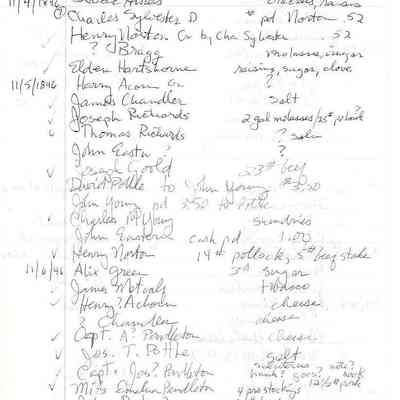 11/4/1846
Charles Sylvester D # pd. Norton .52
Henry Norton Cr by Cha Sylvester .52
? Bragg molasses, sugar
Elden Hartshorne raising, sugar, cloves
11/5/1846 Harry Acorn Cr "
James Chandler salt
Joseph Richards 2 gal molasses/
Thomas Richards ?
John Eastn ? ?
Joseph Goold 23# beef
David Pottle to John Young #3.50
John Young pd 3.50 to Pottle
Charles M Young sundries
John Eastend cash pd 1.00
Henry Norton 14# pollock, 5# beef stake
11/6/46 Alix Green 3# sugar
James Metcalf tobacco
Henry? Achorn cheese
& Chandler cheese
Capt. A? Pendleton cheese
Jos. T. Pottle salt
Capt. Jos? Pendleton
Miss Emeline Pendleton 4 pr stockings